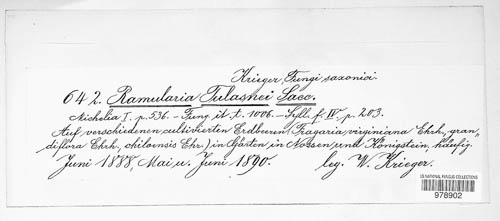 Krieger, Fungi saxonici.
642. Ramularia Tulasnei Sacc.
Michelia I. p. 536. – Fung. it. t. 1006. – Syll. f. IV. p. 203.
Auf verschiedenen cultivierten Erdbeeren (Fragaria virginiana Ehrh., gran,
diflora Ehrh., chiloensis Ehr.) in Gärten in Nossen und Königstein, häufig.
Juni 1888, Mai u. Juni 1890. leg. W. Krieger.
US NATIONAL FUNGUS COLLECTIONS
978902